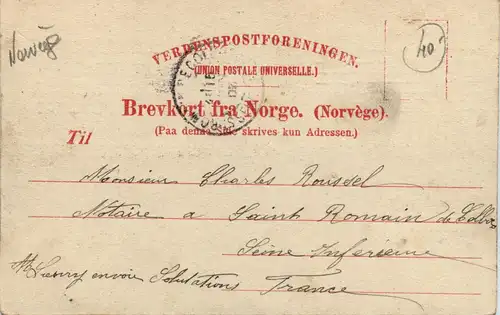 Norvège
VERDENSPOSTFORENINGEN.
(UNION POSTALE UNIVERSELLE.)
40
Brevkort fra Norge. (Norvège).
(Paa denne Side skrives kun Adressen.)
Til
Monsieur Charles Roussel
Notaire a Saint Romain de Colbosc
Seine Inferieure
envoie Salutations France